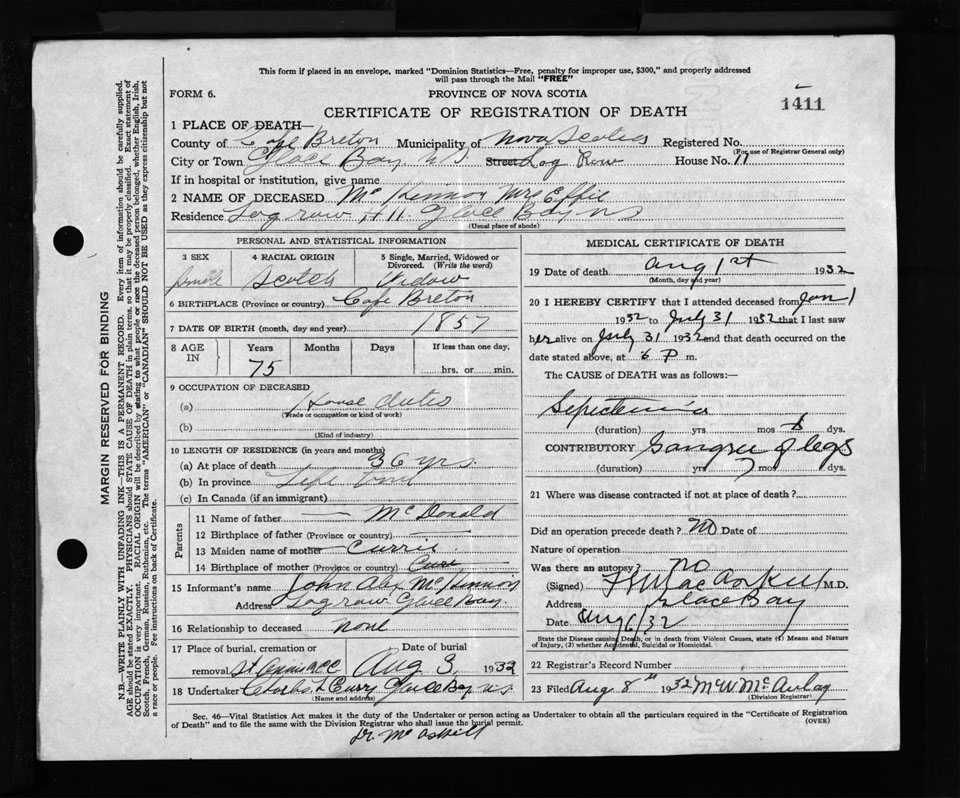 This form if placed in an envelope, marked "Dominion Statistics—Free, penalty for improper use, $300," and properly addressed
will pass through the Mail "FREE"
FORM 6.
PROVINCE OF NOVA SCOTIA
1411
CERTIFICATE OF REGISTRATION OF DEATH
1 PLACE OF DEATH—
County of Cape Breton Municipality of Nova Scotia Registered No.
(For use of Registrar General only)
City or Town Glace Bay NS Street Log Row House No. 11
If in hospital or institution, give name
2 NAME OF DECEASED McKinnon Mrs Effie
Residence Log row # 11 Glace Bay NS
(Usual place of abode)
PERSONAL AND STATISTICAL INFORMATION
3 SEX
female
4 RACIAL ORIGIN
Scotch
5 Single, Married, Widowed or
Divorced. (Write the word)
Widow
6 BIRTHPLACE (Province or country) Cape Breton
7 DATE OF BIRTH (month, day and year) 1857
8 AGE IN
Years Months Days If less than one day,
75 hrs. or min.
9 OCCUPATION OF DECEASED
(a) House duties
(Trade or occupation or kind of work)
(b)
(Kind of industry)
10 LENGTH OF RESIDENCE (in years and months)
(a) At place of death 36 yrs.
(b) In province Life time
(c) In Canada (if an immigrant)
Parents
11 Name of father — McDonald
12 Birthplace of father (Province or country) —
13 Maiden name of mother — Currie
14 Birthplace of mother (Province or country)
15 Informant's name John Alex McKinnon
Address Log row Glace Bay
16 Relationship to deceased none
17 Place of burial, cremation or removal St Anns NCC
Date of burial
Aug 3 1932
18 Undertaker Curry Glace Bay N.S.
(Name and address)
MEDICAL CERTIFICATE OF DEATH
19 Date of death Aug 1st 1932
(Month, day and year)
20 I HEREBY CERTIFY that I attended deceased from Jan 1
1932 to July 31 1932 that I last saw
her alive on July 31 1932 and that death occurred on the
date stated above, at 6 P m.
The CAUSE of DEATH was as follows:—
(duration) yrs mos dys.
CONTRIBUTORY of legs
(duration) yrs mos dys.
21 Where was disease contracted if not at place of death?
Did an operation precede death? No Date of
Nature of operation
Was there an autopsy? no
(Signed) M.D.
Address Glace Bay
Date Aug 6/32
State the Disease causing Death, or in death from Violent Causes, state (1) Means and Nature
of Injury, (2) whether Accidental, Suicidal or Homicidal.
22 Registrar's Record Number
23 Filed Aug 8th 1932 McAulay
(Division Registrar)
Sec. 46—Vital Statistics Act makes it the duty of the Undertaker or person acting as Undertaker to obtain all the particulars required in the "Certificate of Registration
of Death" and to file the same with the Division Registrar who shall issue the burial permit.
(OVER)
Dr. McAskill
MARGIN RESERVED FOR BINDING
N.B.—WRITE PLAINLY WITH UNFADING INK—THIS IS A PERMANENT RECORD. Every item of information should be carefully supplied.
AGE should be stated EXACTLY. PHYSICIANS should STATE CAUSE OF DEATH in plain terms, so that it may be properly classified. Exact statement of
OCCUPATION is very important. RACIAL ORIGIN will be described by stating to what people or race the deceased person belonged, whether English, Irish,
Scotch, French, German, Russian, Ruthenian, etc. The terms "AMERICAN" or "CANADIAN" SHOULD NOT BE USED as they express citizenship but not
a race or people. Fee instructions on back of Certificate.